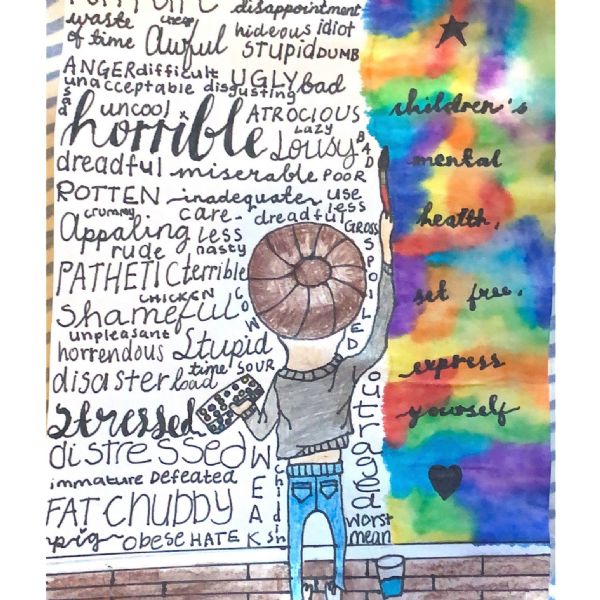 disappointment
waste
of time
Awful
hideous idiot
STUPID DUMB
ANGER difficult UGLY bad
unacceptable disgusting
sad
uncool
ATROCIOUS
horrible
LAZY
Lousy
BAD
dreadful miserable POOR
ROTTEN inadequate
use
less
crummy
care-
less
dreadful
GROSS
Appaling
rude
nasty
PATHETIC terrible
SPOILED
CHICKEN
COW
Shameful
unpleasant
horrendous Stupid
time SOUR
disaster bad
Stressed
outraged
distressed
WEAK
childish
immature DeFeated
FAT CHUBBY
pig obese HATE
worst
mean
children's
mental
health,
set free,
express
yourself